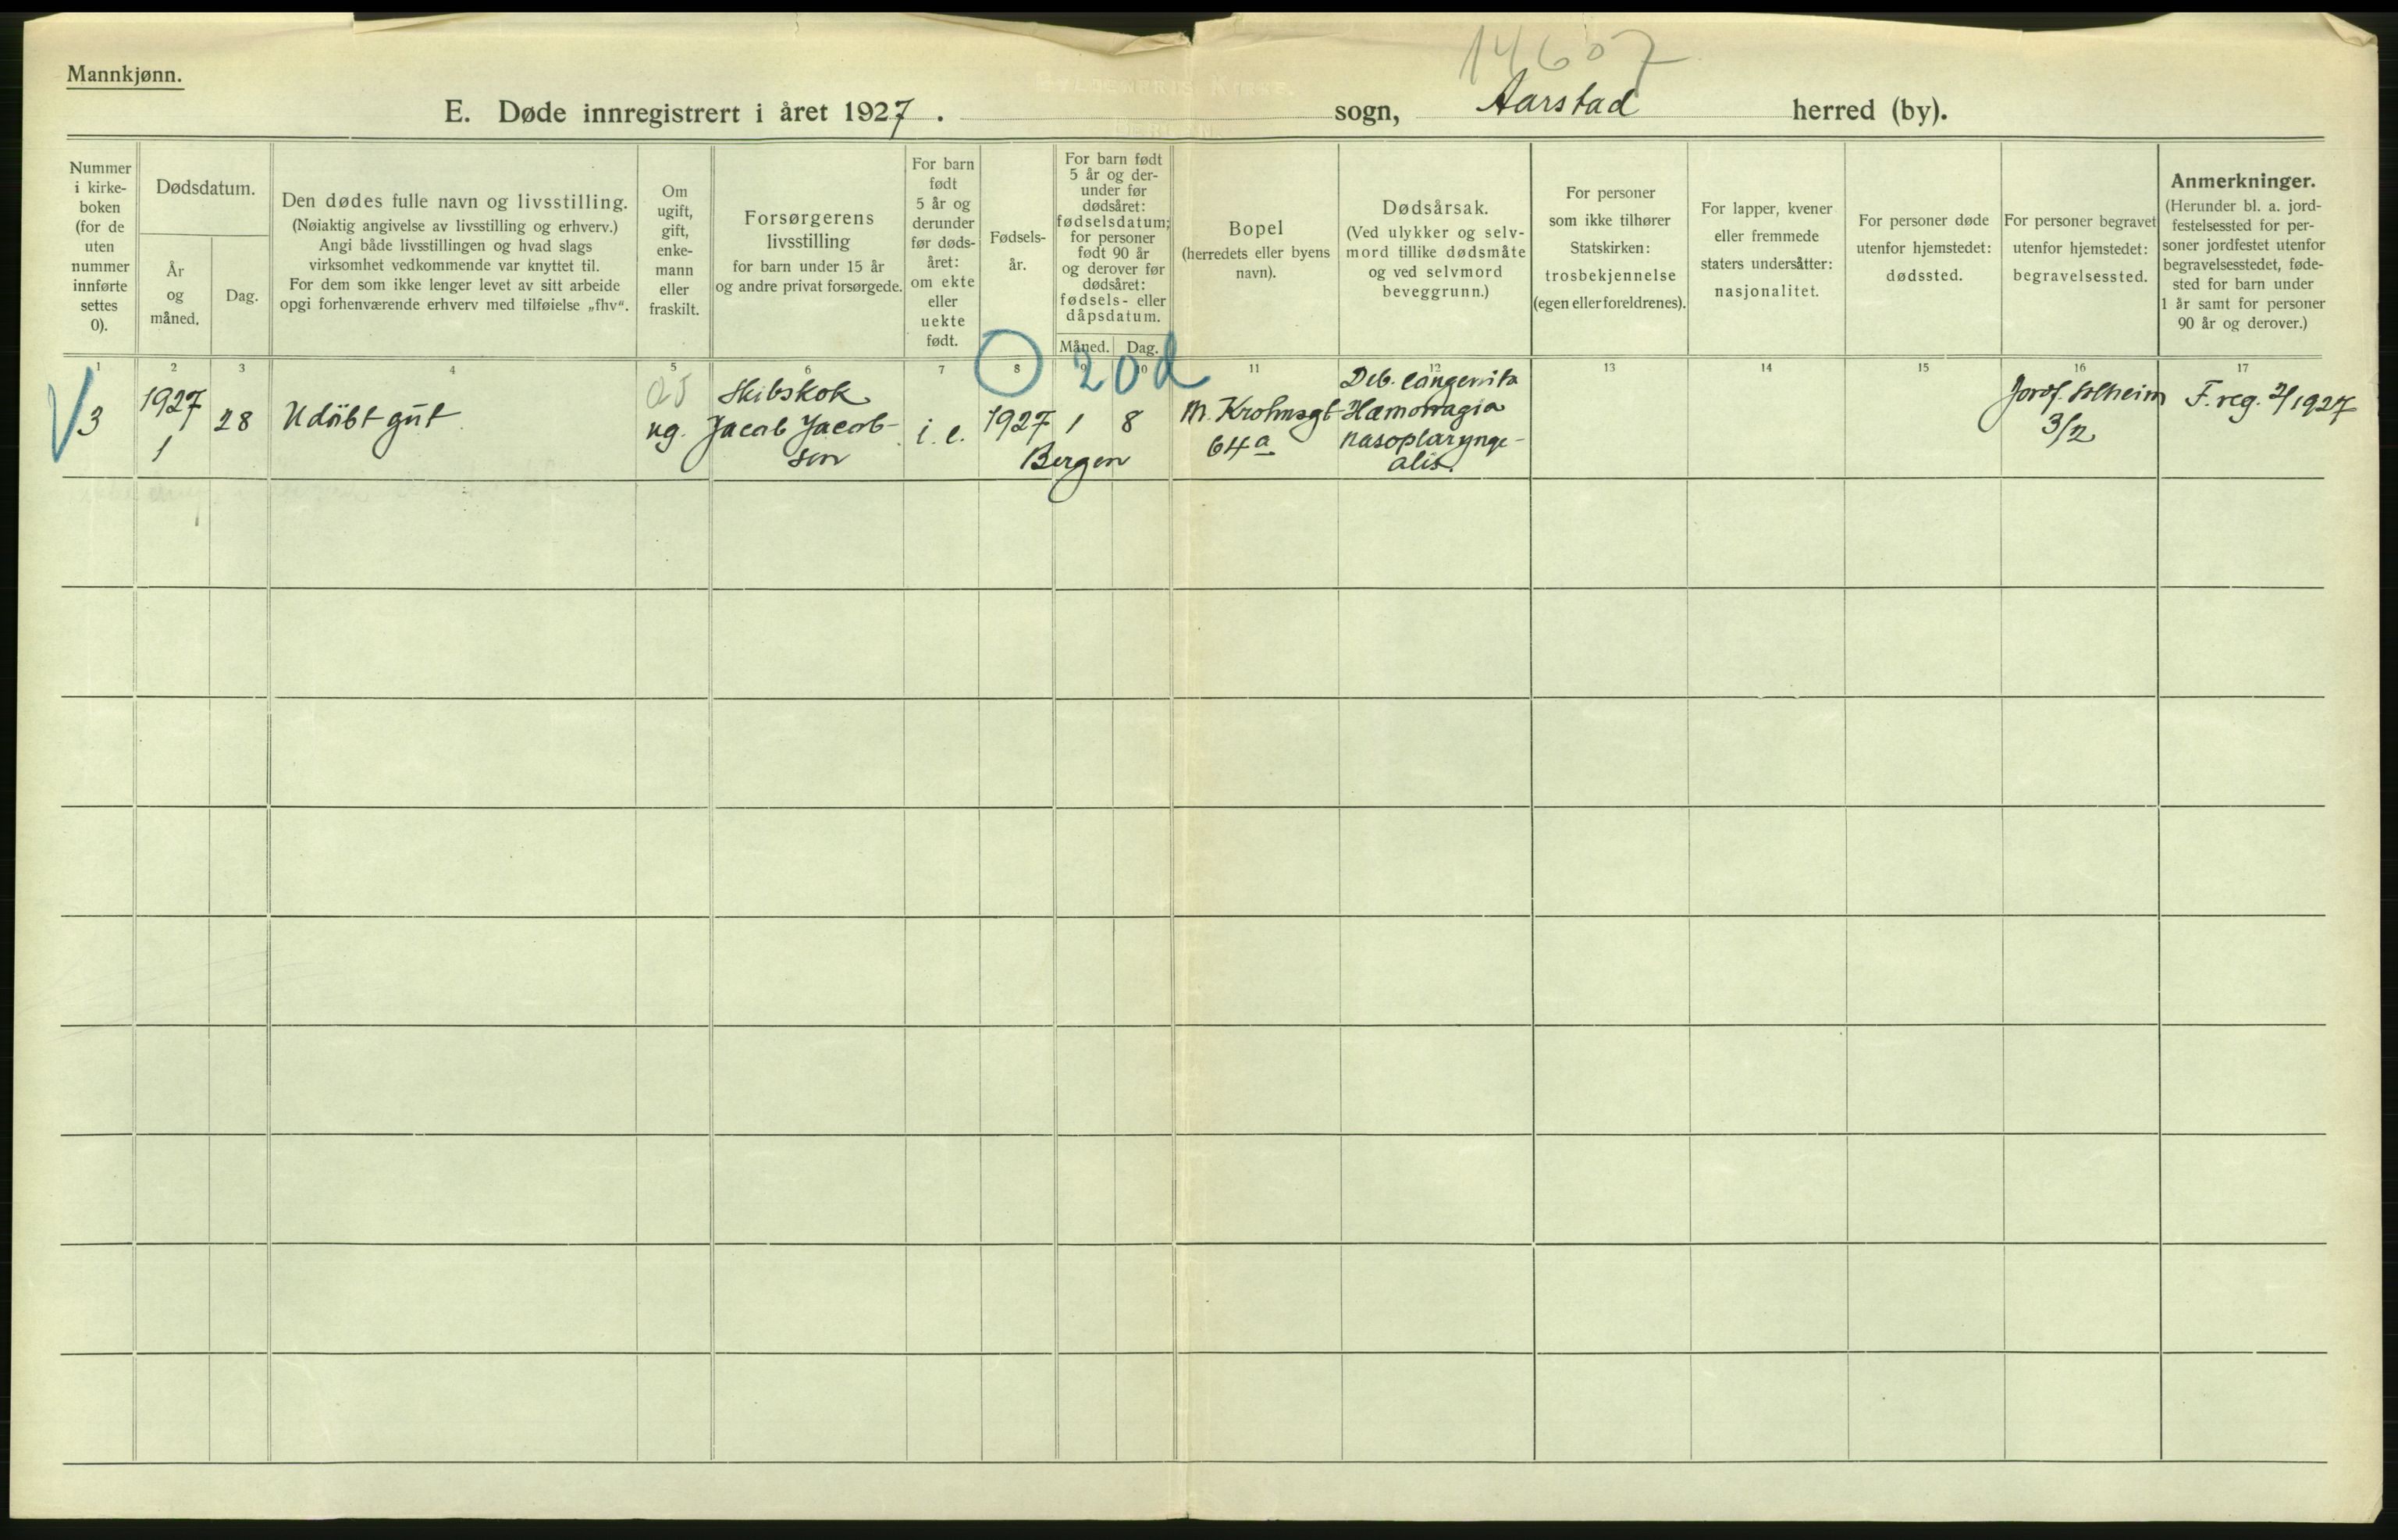 14607
Mannkjønn.
E. Døde innregistrert i året 1927. sogn, Aarstad herred (by).
Nummer
i kirke-
boken
(for de
uten
nummer
innførte
settes
0).
Dødsdatum.
År
og
måned.
Dag.
Den dødes fulle navn og livsstilling.
(Nøiaktig angivelse av livsstilling og erhverv.)
Angi både livsstillingen og hvad slags
virksomhet vedkommende var knyttet til.
For dem som ikke lenger levet av sitt arbeide
opgi forhenværende erhverv med tilføielse „fhv“.
Om
ugift,
gift,
enke-
mann
eller
fraskilt.
Forsørgerens
livsstilling
for barn under 15 år
og andre privat forsørgede.
For barn
født
5 år og
derunder
før døds-
året:
om ekte
eller
uekte
født.
Fødsels-
år.
For barn født
5 år og der-
under før
dødsåret:
fødselsdatum;
for personer
født 90 år
og derover før
dødsåret:
fødsels- eller
dåpsdatum.
Måned. Dag.
Bopel
(herredets eller byens
navn).
Dødsårsak.
(Ved ulykker og selv-
mord tillike dødsmåte
og ved selvmord
beveggrunn.)
For personer
som ikke tilhører
Statskirken:
trosbekjennelse
(egen eller foreldrenes).
For lapper, kvener
eller fremmede
staters undersåtter:
nasjonalitet.
For personer døde
utenfor hjemstedet:
dødssted.
For personer begravet
utenfor hjemstedet:
begravelsessted.
Anmerkninger.
(Herunder bl. a. jord-
festelsessted for per-
soner jordfestet utenfor
begravelsesstedet, føde-
sted for barn under
1 år samt for personer
90 år og derover.)
1 2 3 4 5 6 7 8 9 10 11 12 13 14 15 16 17
0 20d
3
1927
1
28
Udöbt gut
ug.
Skibskok
Jacob Jacob-
sen
i. e.
1927 1 8
Bergen
M. Krohnsgt
64a
Deb. congenita
Hæmorragia
nasopharynge-
alis.
Jordf. Solheim
3/2
F. reg. 2/1927